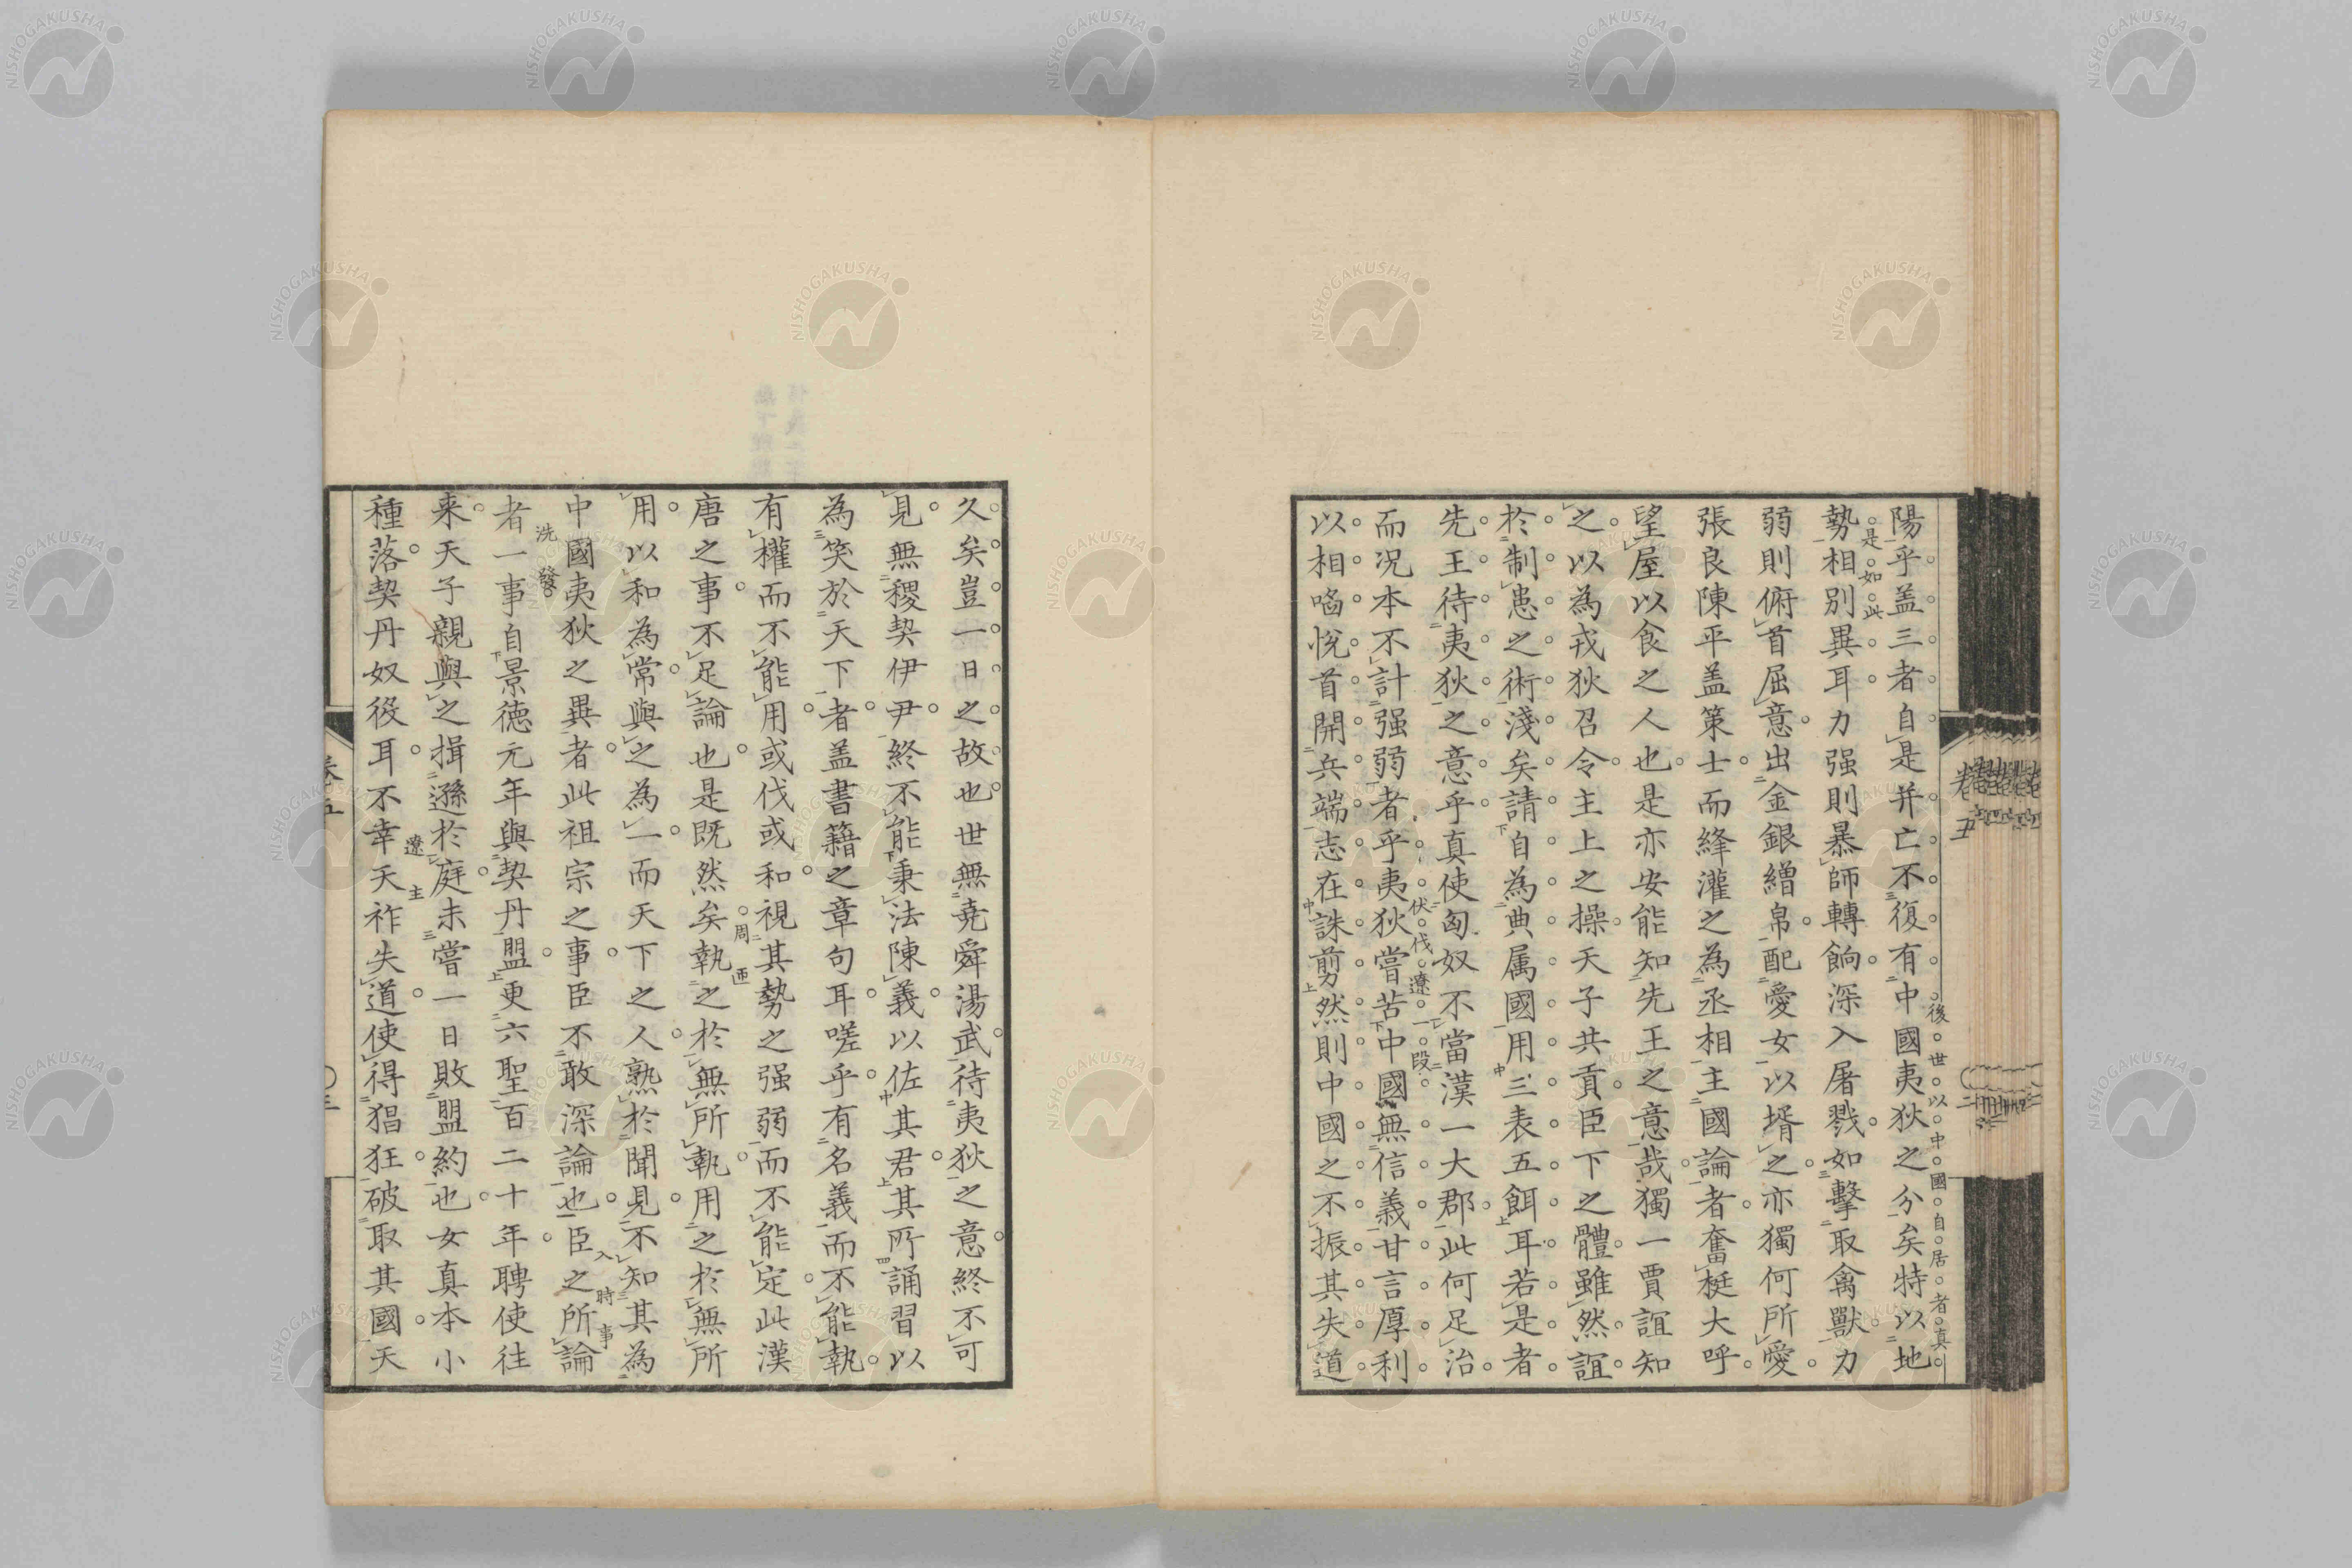 陽乎盖三者自是并亡不復有中國夷狄之分矣特以地
後世以中國自居者真
是如此
勢相別異耳力强則暴師轉餉深入屠戮如擊取禽獸力
弱則俯首屈意出金銀繒帛配愛女以壻之亦獨何所愛
張良陳平盖策士而絳灌之為丞相主國論者奮梃大呼
望屋以食之人也是亦安能知先王之意哉獨一賈誼知
之以為戎狄召令主上之操天子共貢臣下之體雖然誼
於制患之術淺矣請自為典属國用三表五餌耳若是者
先王待夷狄之意乎真使匈奴不當漢一大郡此何足治
伏伐遼一段
而况本不計强弱者乎夷狄嘗苦中國無信義甘言厚利
以相啗悅首開兵端志在誅剪然則中國之不振其失道
久矣豈一日之故也世無堯舜湯武待夷狄之意終不可
見無稷契伊尹終不能秉法陳義以佐其君其所誦習以
為笑於天下者盖書籍之章句耳嗟乎有名義而不能執
有權而不能用或伐或和視其勢之强弱而不能定此漢
周匝
唐之事不足論也是既然矣執之於無所執用之於無所
用以和為常與之為一而天下之人熟於聞見不知其為
入時事
中國夷狄之異者此祖宗之事臣不敢深論也臣之所論
洗發
者一事自景徳元年與契丹盟更六聖百二十年聘使往
来天子親與之揖遜於庭未嘗一日敗盟約也女真本小
遼主
種落契丹奴役耳不幸天祚失道使得猖狂破取其國天
卷五
NISHOGAKUSHA